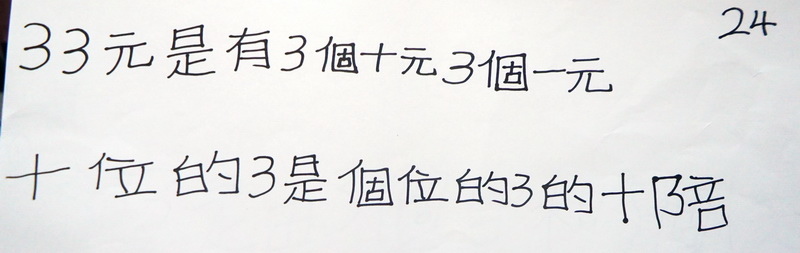 24
33元是有3個十元3個一元
十位的3是個位的3的十陪